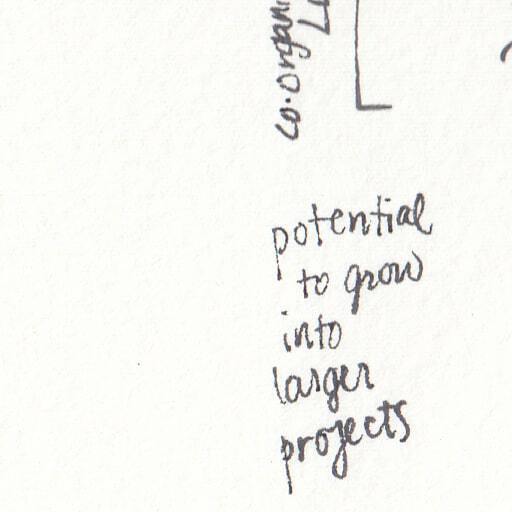 potential
to grow
into
larger
projects